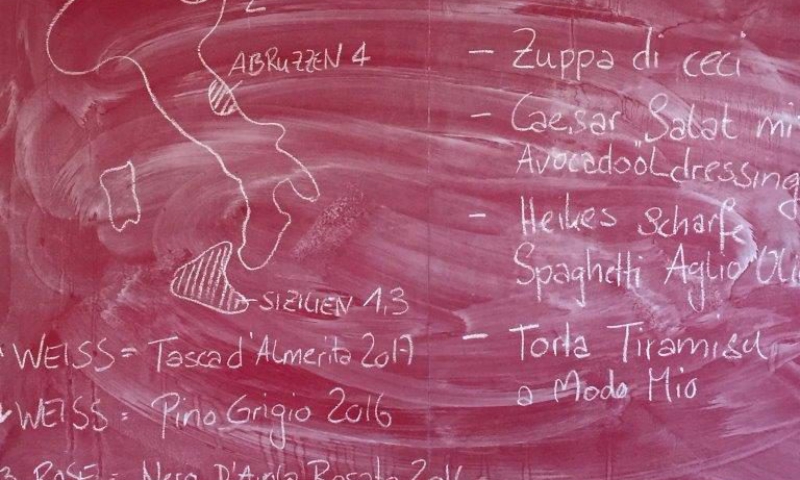 ABRUZZEN 4
SIZILIEN 1,3
WEISS = Tasca d'Almerita 2017
WEISS = Pino Grigio 2016
3 ROSE = Nero D'Avola Rosato
- Zuppa di ceci
- Caesar Salat mi
Avocadoöldressing
- Heikes scharfe
Spaghetti Aglio Oli
- Torta Tiramisu
a Modo Mio